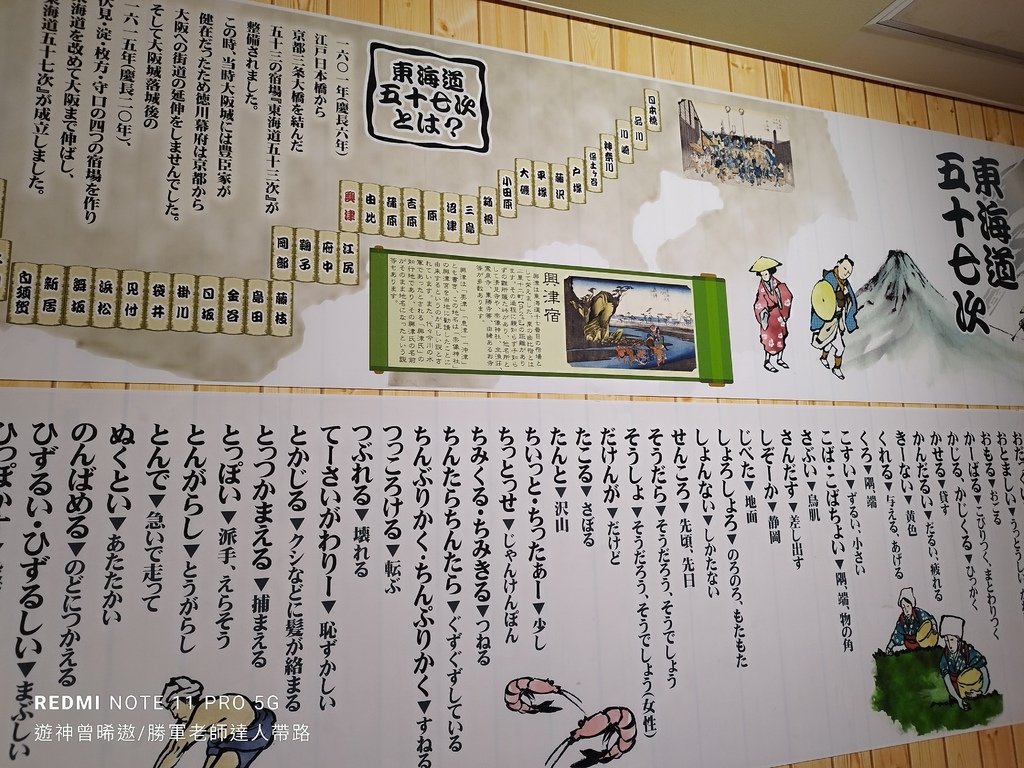 東海道
五十七次
東海道
五十七次
とは？
一六〇一年(慶長六年)
江戸日本橋から
京都三条大橋を結んだ
五十三の宿場『東海道五十三次』が
整備されました。
この時、当時大阪城には豊臣家が
健在だったため徳川幕府は京都から
大阪への街道の延伸をしませんでした。
そして大阪城落城後の
一六一五年(慶長二〇年)、
伏見・淀・枚方・守口の四つの宿場を作り
海道を改めて大阪まで伸ばし、
東海道五十七次』が成立しました。
日本橋
品川
川崎
神奈川
保土ヶ谷
戸塚
藤沢
平塚
大磯
小田原
箱根
三島
沼津
原
吉原
蒲原
由比
興津
江尻
府中
鞠子
岡部
藤枝
島田
金谷
日坂
掛川
袋井
見付
浜松
舞坂
新居
白須賀
興津宿
おとましい▼うっとうしい
おもる▼おごる
かーばる▼こびりつく、まとわりつく
かじる、かじくる▼ひっかく
かせる▼貸す
かんだるい▼だるい、疲れる
きーない▼黄色
くれる▼与える、あげる
くろ▼隅、端
こすい▼ずるい、小さい
こば・こばちょい▼隅、端、物の角
さぶい▼鳥肌
さんだす▼差し出す
しぞーか▼静岡
じべた▼地面
しょろしょろ▼のろのろ、もたもた
しょんない▼しかたない
せんころ▼先頃、先日
そうだら▼そうだろう、そうでしょう
そうしょ▼そうだろう、そうでしょう(女性)
だけんが▼だけど
たこる▼さぼる
たんと▼沢山
ちいっと・ちったぁー▼少し
ちっとっせ▼じゃんけんぽん
ちみくる・ちみきる▼つねる
ちんたらちんたら▼ぐずぐずしている
ちんぶりかく・ちんぷりかく▼すねる
つっころける▼転ぶ
つぶれる▼壊れる
てーさいがわりー▼恥ずかしい
とかじる▼クシなどに髪が絡まる
とっつかまえる▼捕まえる
とっぽい▼派手、えらそう
とんがらし▼とうがらし
とんで▼急いで走って
ぬくとい▼あたたかい
のんばめる▼のどにつかえる
ひずるい・ひずるしい▼まぶしい
REDMI NOTE 11 PRO 5G
遊神曾晞遨/勝軍老師達人帶路